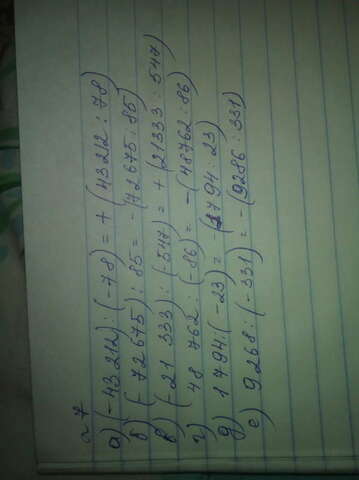 а7
а) (-43 212) : (-78) = + (43212 : 78)
б) (- 72 675) : 85 = - (72675 : 85)
в) (-21 333) : (-547) = + (21333 : 547)
г) 48 762 : (-86) = - (48762 : 86)
д) 1 794 : (-23) = - (1794 : 23)
е) 9268 : (-331) = - (9286 : 331)